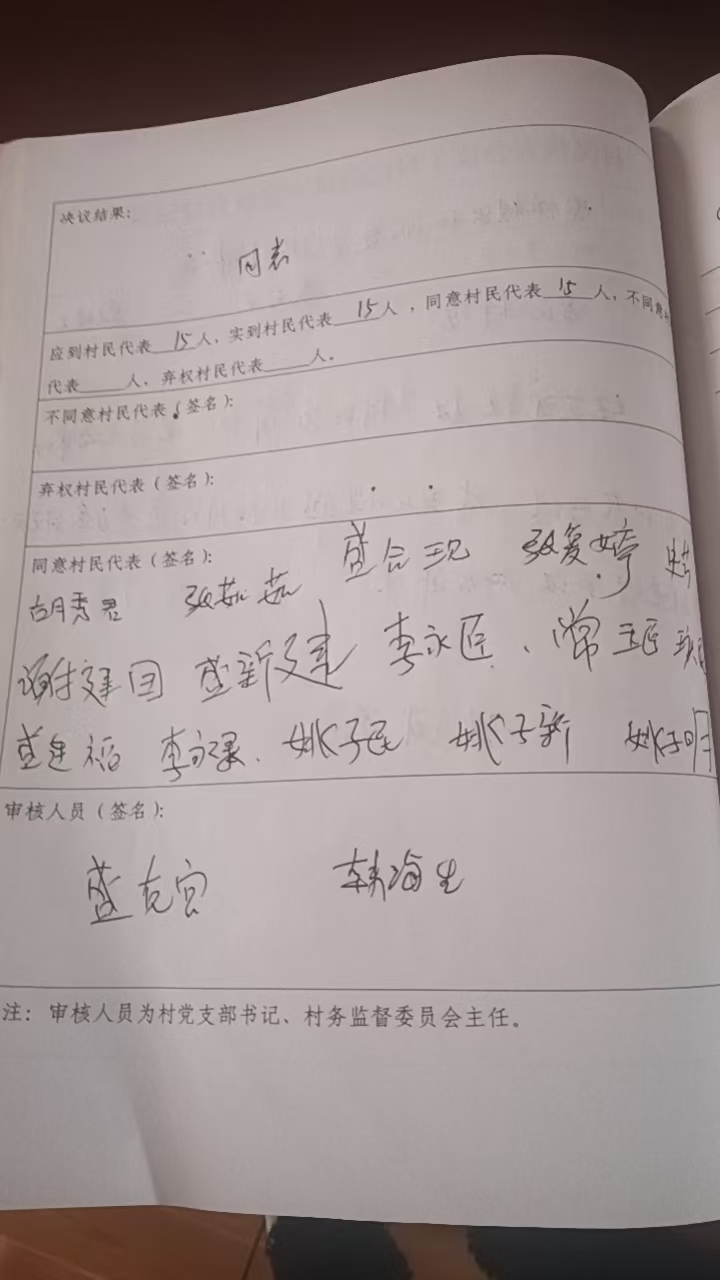 决议结果:
同意
应到村民代表 15 人,实到村民代表 15 人,同意村民代表 15 人,不同意
代表 人,弃权村民代表 人。
不同意村民代表(签名):
弃权村民代表(签名):
同意村民代表(签名): 盛合现 张复婷
胡秀君 张茹茹
谢建国 盛新建 李永匠、常玉匠
盛建福 李永录、姚子民 姚子新 姚子明
审核人员(签名):
盛克宫 韩海生
注: 审核人员为村党支部书记、村务监督委员会主任。